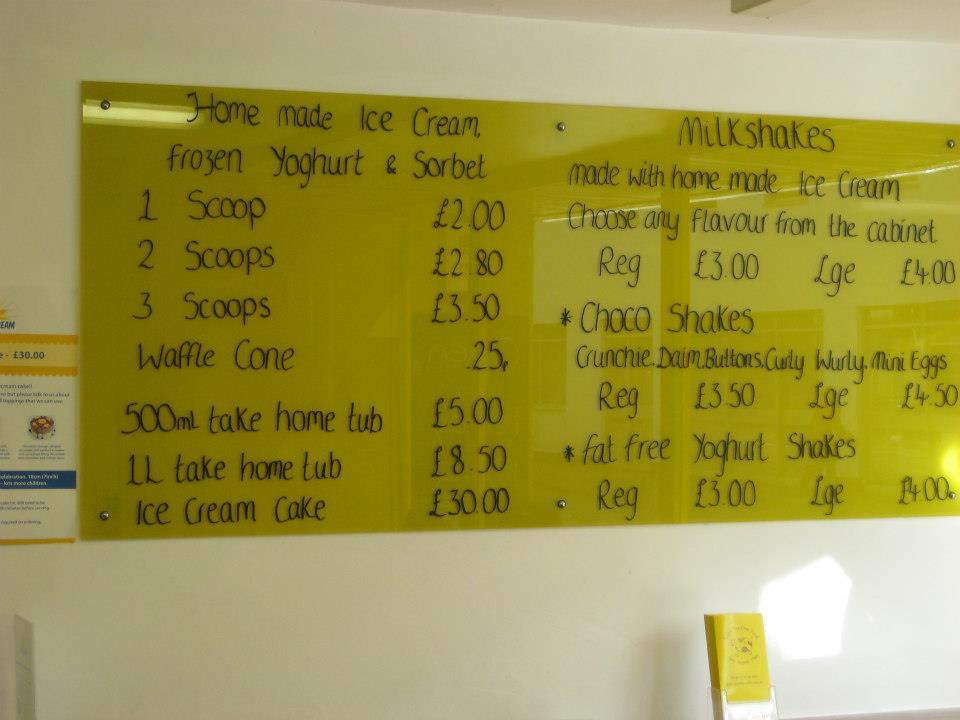 Home made Ice Cream,
frozen Yoghurt & Sorbet
1 Scoop £2.00
2 Scoops £2.80
3 Scoops £3.50
Waffle Cone .25p
500mL take home tub £5.00
1L take home tub £8.50
Ice Cream Cake £30.00
Milkshakes
made with home made Ice Cream
Choose any flavour from the cabinet
Reg £3.00 Lge £4.00
* Choco Shakes
Crunchie, Daim, Buttons, Curly Wurly, Mini Eggs
Reg £3.50 Lge £4.50
* fat free Yoghurt Shakes
Reg £3.00 Lge £4.00
- £30.00